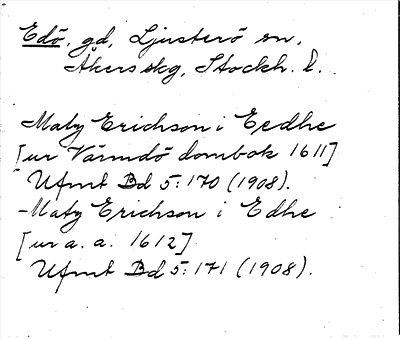 Edö, gd, Ljusterö sn,
Åkers skg, Stockh. l.
Maty Erichson i Eedhe
[ur Värmdö dombok 1611]
Ufmt Bd 5:170 (1908).
-Maty Erichson i Edhe
[ur a. a. 1612]
Ufmt Bd 5:171 (1908).